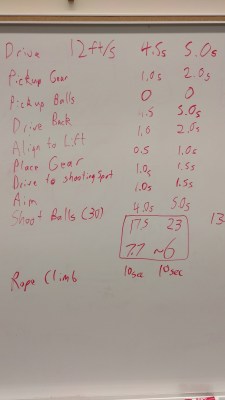 Drive 12ft/s 4.5s 5.0s
Pickup Gear 1.0s 2.0s
Pickup Balls 0 0
Drive Back 4.5 5.0s
Align to Lift 1.0 2.0s
Place Gear 0.5 1.0s
Drive to shooting spot 1.0s 1.5s
Aim 1.0s 1.5s
Shoot Balls (30) 4.0s 5.0s
17.5 23 13
7.7 ~6
Rope Climb 10sec 10sec